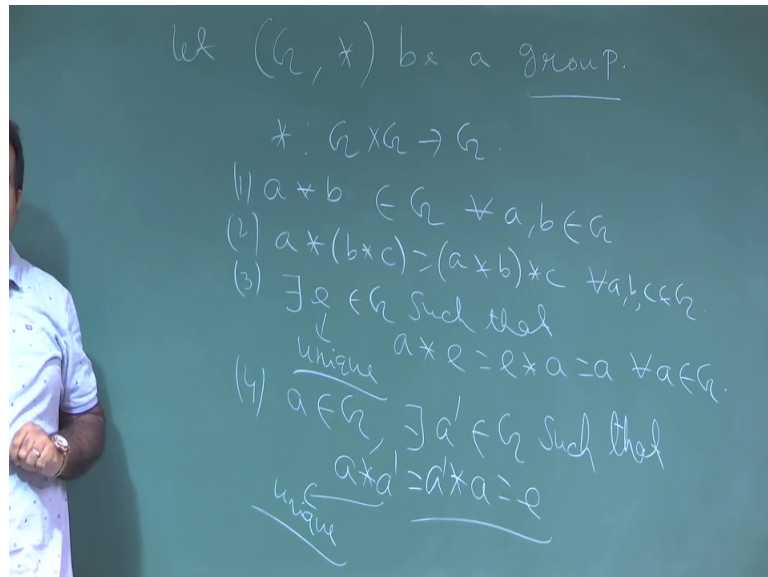 let (G, *) be a group.
* : G × G → G.
(1) a * b ∈ G ∀ a, b ∈ G
(2) a * (b * c) = (a * b) * c ∀ a, b, c ∈ G.
(3) ∃ e ∈ G such that
unique a * e = e * a = a ∀ a ∈ G.
(4) a ∈ G, ∃ a' ∈ G such that
a * a' = a' * a = e
unique